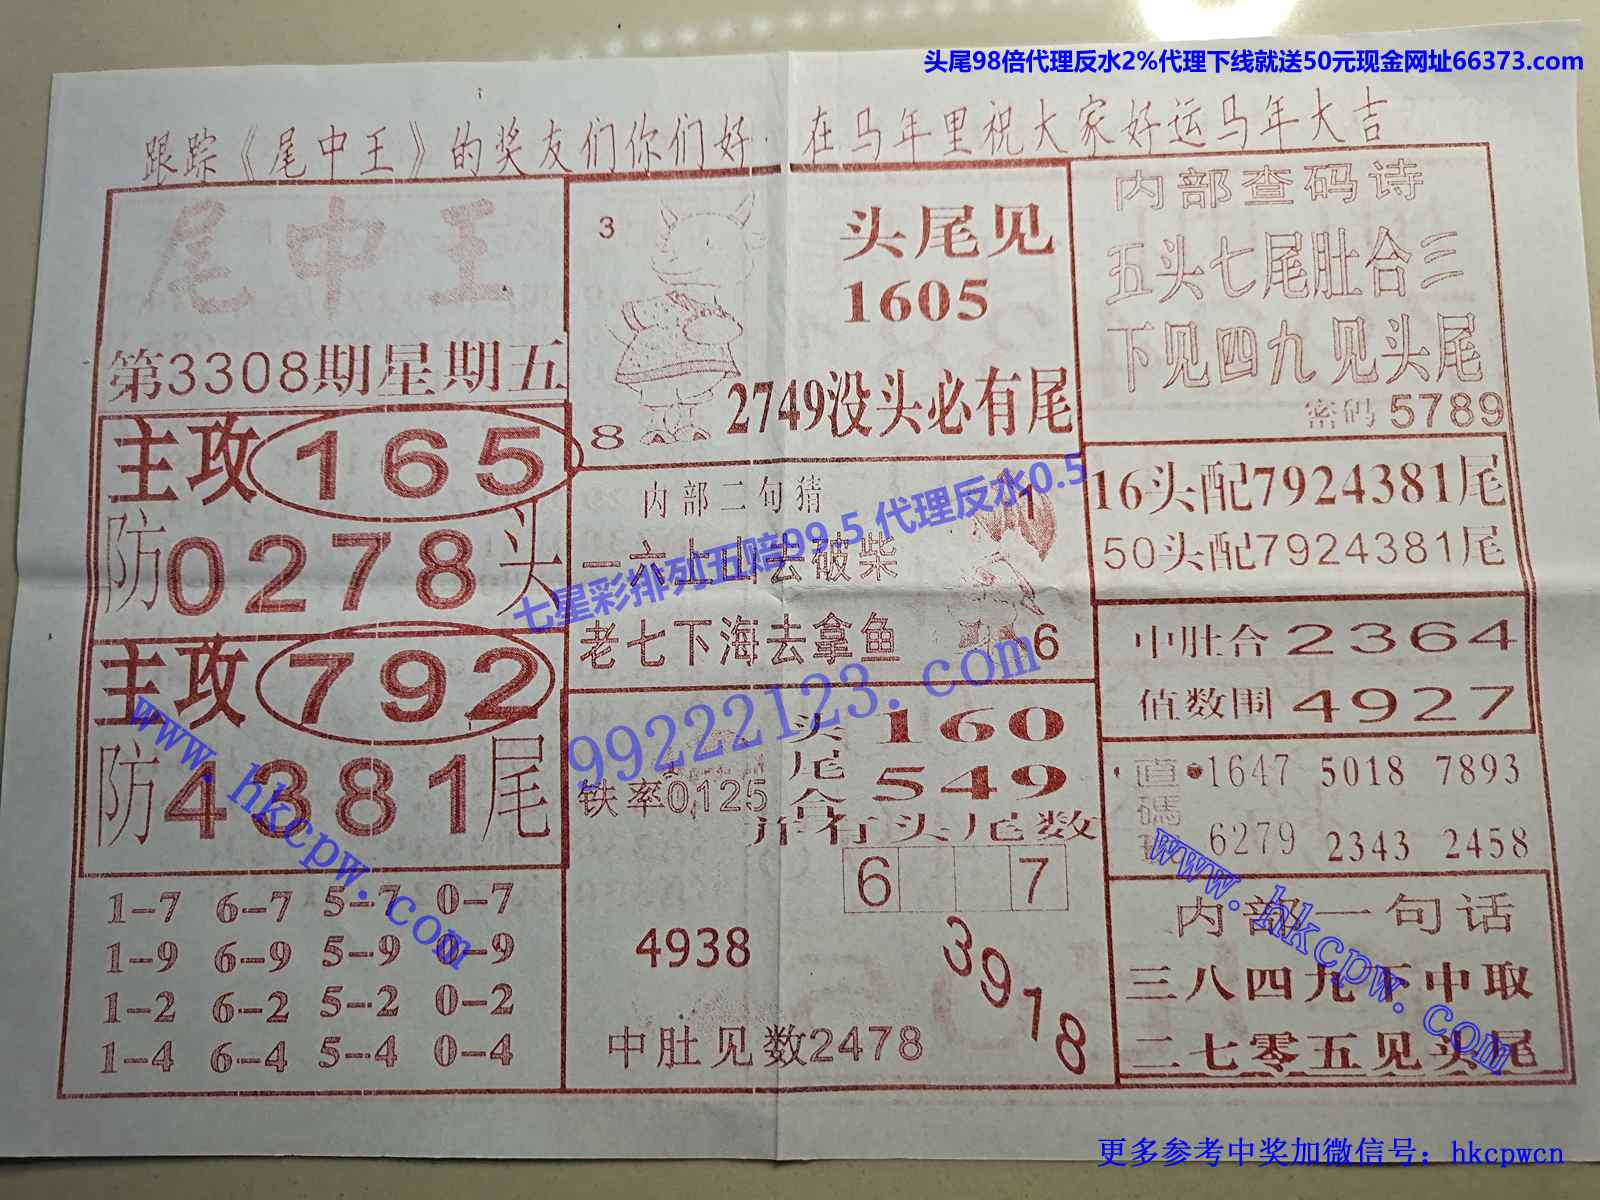 头尾98倍代理反水2%代理下线就送50元现金网址66373.com
跟踪《尾中王》的奖友们你们好 在马年里祝大家好运马年大吉
尾中王
第3308期星期五
主攻165
防0278头
主攻792
防4381尾
1-7 6-7 5-7 0-7
1-9 6-9 5-9 0-9
1-2 6-2 5-2 0-2
1-4 6-4 5-4 0-4
3
8
头尾见
1605
2749没头必有尾
内部二句猜
一六上山去破柴
老七下海去拿鱼
1
6
七星彩排列五赔99.5 代理反水0.5
99222123.com
头尾合
160
549
铁率0125
并有头尾数
6 7
4938
3918
中肚见数2478
内部查码诗
五头七尾肚合三
下见四九 见头尾
密码 5789
16头配7924381尾
50头配7924381尾
中肚合2364
值数围4927
直碼
1647 5018 7893
6279 2343 2458
内部一句话
三八四九下中取
二七零五见头尾
www.hkcpw.com
www.hkcpw.com
更多参考中奖加微信号：hkcpwcn